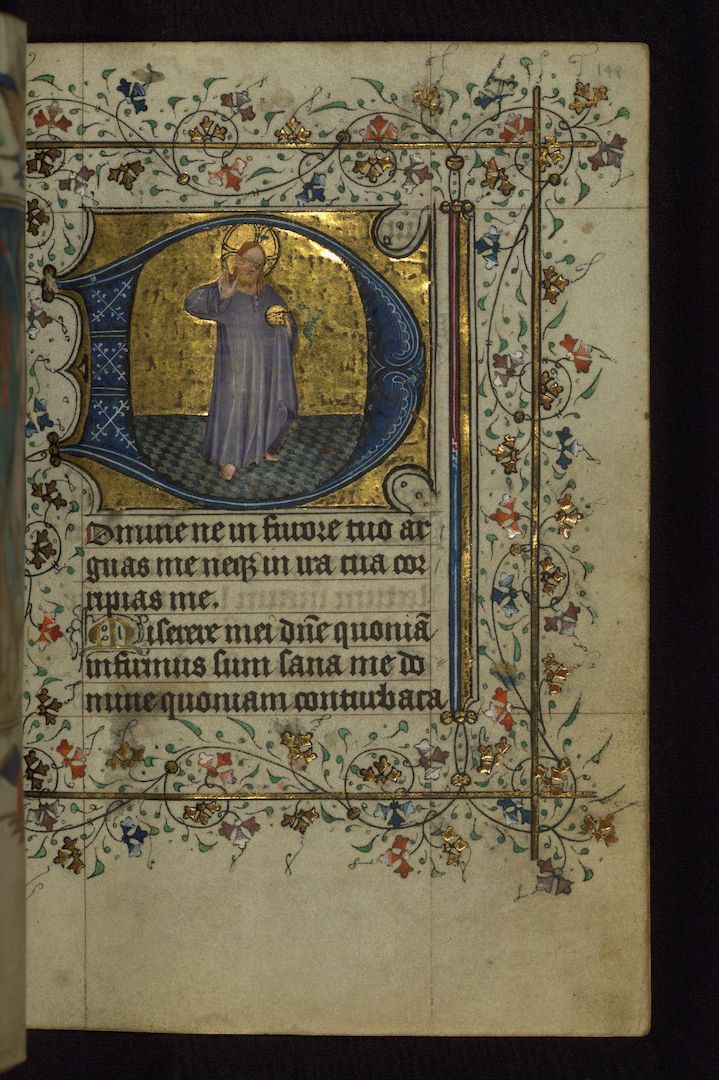 198
Domine ne in furore tuo ar
guas me neqꝫ in ira tua cor
ripias me.
Miserere mei dñe quoniã
infirmus sum sana me do
mine quoniam conturbata